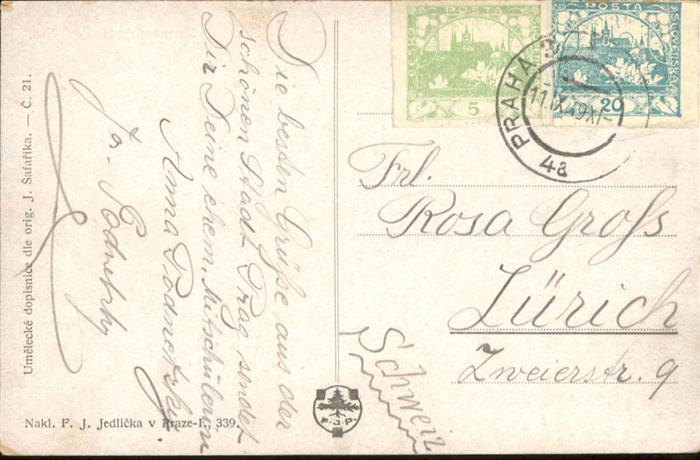 Umělecké dopisnice dle orig. J. Šafaříka. — Č. 21.
Die besten Grüße aus der
schönen Stadt Prag sendet
Dir Deine ehem. Mitschülerin
Anna Podnetzky.
Nakl. F. J. Jedlička v Praze-I., 339.
F.J.P.
ČESKO
POSTA
5
POSTA
SLOVENSKÁ
20
PRAHA 3
11.IX.19.XI-
4a
Frl.
Rosa Gross
Zürich
Zweierstr. 9
Schweiz